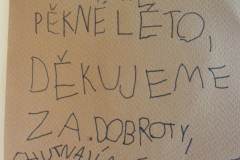 PĚKNÉ LÉTO,
DĚKUJEME
ZA.DOBROTY,